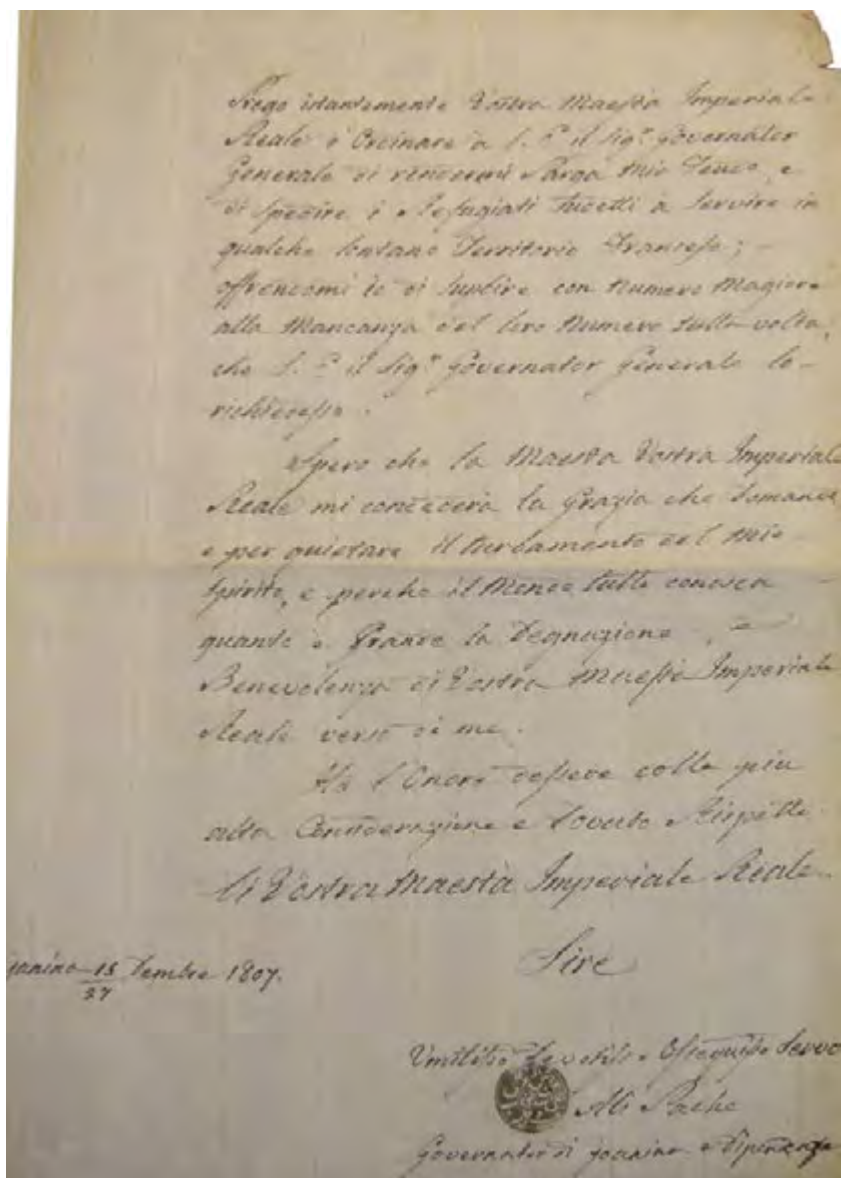 Prego istantemente Vostra Maestà Imperiale
Reale d'Ordinare a S. E. il Sigr Governator
Generale di rendermi Parga mio Feudo, e
di spedire i Refugiati sudetti à servire in
qualche lontano Territorio Francese; –
offrendomi io di suplire con Numero Magiore
alla Mancanza del loro Numero sulla volta,
che S. E. il Sigr Governator Generale lo –
richiedesse.
Spero che la Maestà Vostra Imperiale
Reale mi concederà la Grazia che domando
e per quietare il turbamento del mio
spirito, e perche il Mondo tutto conosca –
quanto è Grande la Degnazione, e
Benevolenza di Vostra Maestà Imperiale
Reale verso di me.
Ho l'Onore d'essere colla piu
alta Considerazione e dovuto Rispetto
Di Vostra Maestà Imperiale Reale
Sire
Janina 15/27 1807.
Umilisso Devotiso e Ossequiso Servo
Ali Pacha
Governator di Joanina e Dipendenze